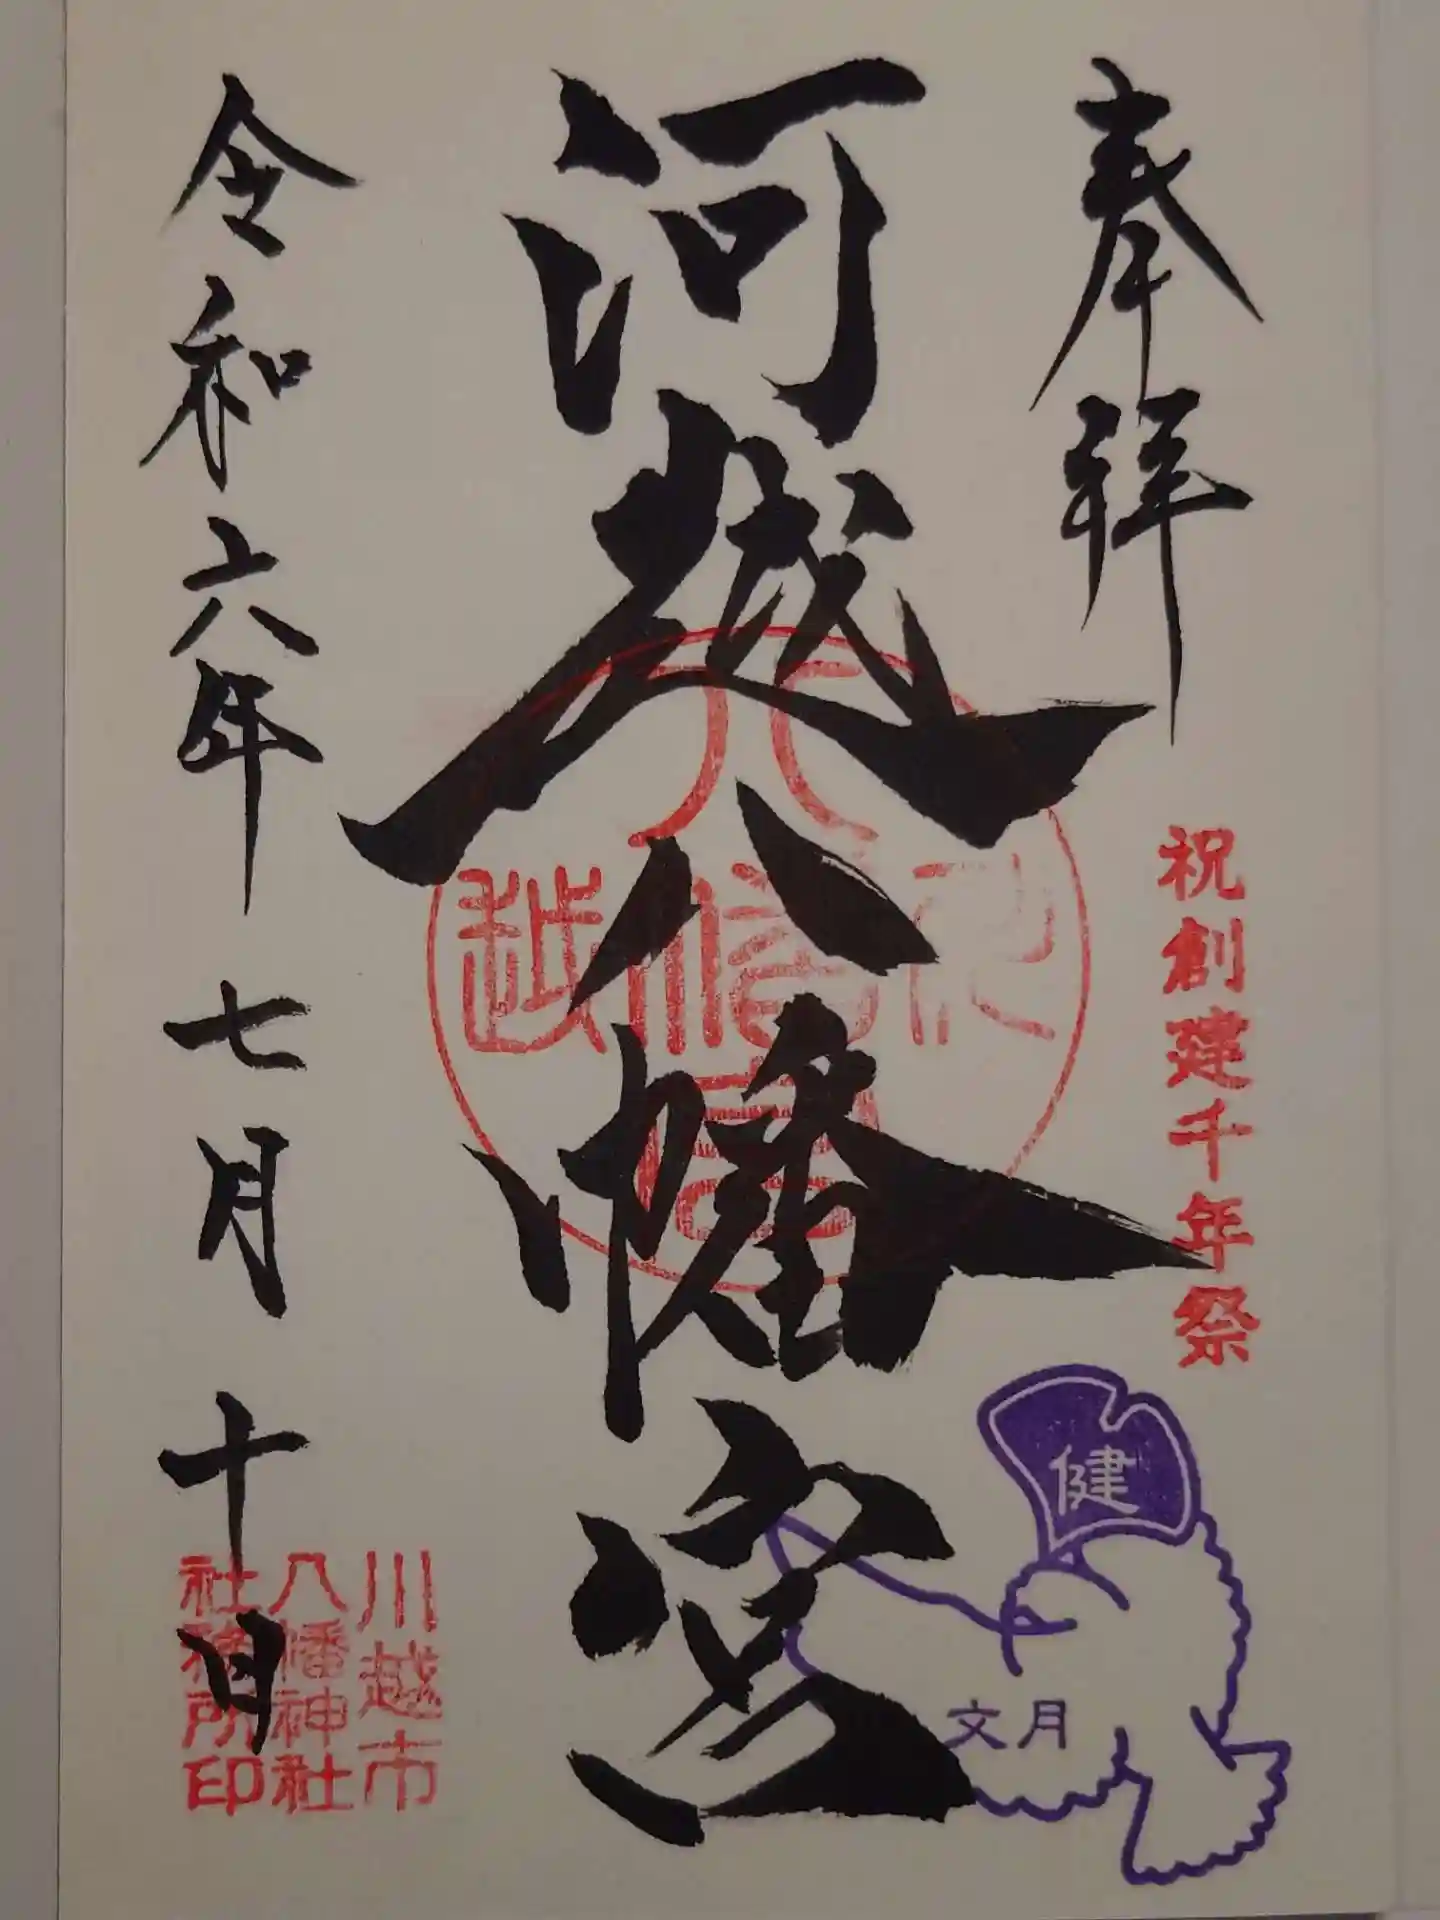 奉拝
祝創建千年祭
健
文月
河越八幡宮
川越市
八幡神社
社務所印
令和六年七月十日